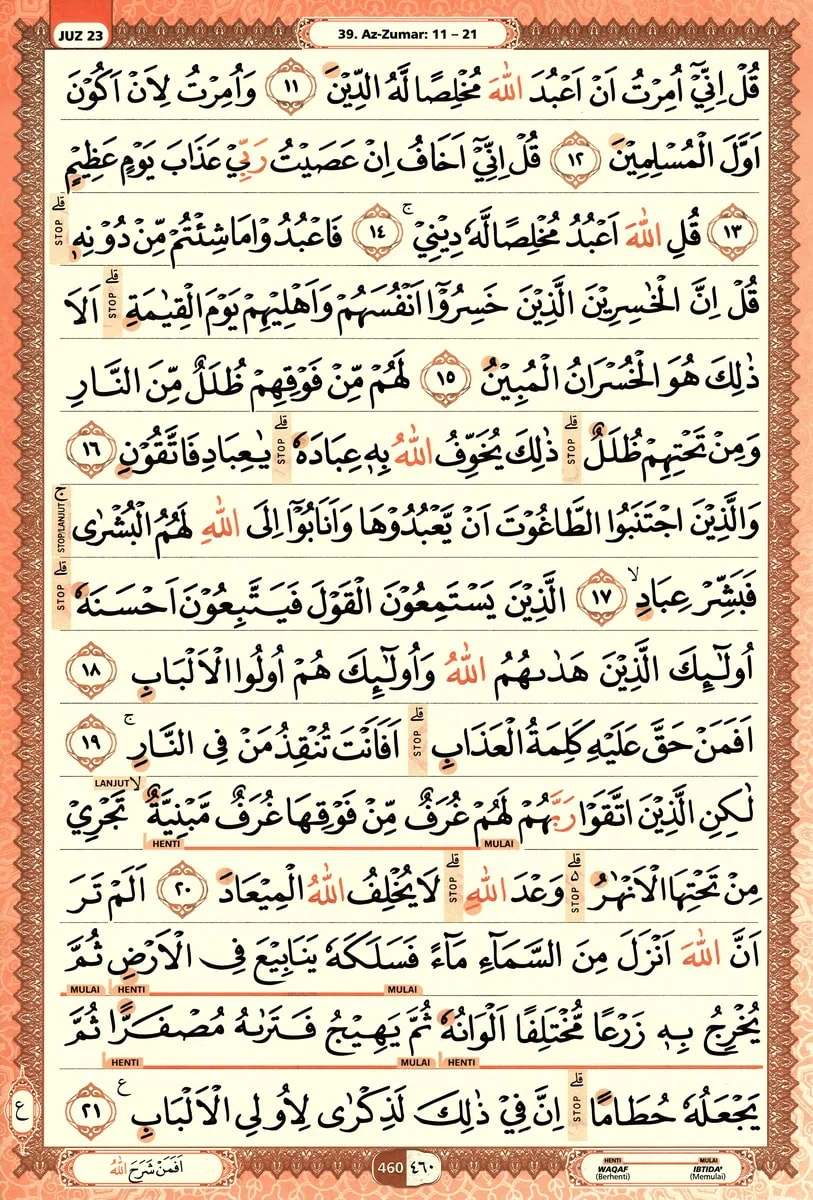 JUZ 23
39. Az-Zumar: 11 – 21
قُلْ اِنِّيْٓ اُمِرْتُ اَنْ اَعْبُدَ اللّٰهَ مُخْلِصًا لَّهُ الدِّيْنَۙ ١١ وَاُمِرْتُ لِاَنْ اَكُوْنَ
اَوَّلَ الْمُسْلِمِيْنَ ١٢ قُلْ اِنِّيْٓ اَخَافُ اِنْ عَصَيْتُ رَبِّيْ عَذَابَ يَوْمٍ عَظِيْمٍ
١٣ قُلِ اللّٰهَ اَعْبُدُ مُخْلِصًا لَّهٗ دِيْنِيْۚ ١٤ فَاعْبُدُوْا مَا شِئْتُمْ مِّنْ دُوْنِهٖۗ STOP
قُلْ اِنَّ الْخٰسِرِيْنَ الَّذِيْنَ خَسِرُوْٓا اَنْفُسَهُمْ وَاَهْلِيْهِمْ يَوْمَ الْقِيٰمَةِۗ STOP اَلَا
ذٰلِكَ هُوَ الْخُسْرَانُ الْمُبِيْنُ ١٥ لَهُمْ مِّنْ فَوْقِهِمْ ظُلَلٌ مِّنَ النَّارِ
وَمِنْ تَحْتِهِمْ ظُلَلٌۗ STOP ذٰلِكَ يُخَوِّفُ اللّٰهُ بِهٖ عِبَادَهٗۗ STOP يٰعِبَادِ فَاتَّقُوْنِ ١٦
وَالَّذِيْنَ اجْتَنَبُوا الطَّاغُوْتَ اَنْ يَّعْبُدُوْهَا وَاَنَابُوْٓا اِلَى اللّٰهِ لَهُمُ الْبُشْرٰىۚ STOP/LANJUT
فَبَشِّرْ عِبَادِۙ ١٧ الَّذِيْنَ يَسْتَمِعُوْنَ الْقَوْلَ فَيَتَّبِعُوْنَ اَحْسَنَهٗۗ STOP
اُولٰۤىِٕكَ الَّذِيْنَ هَدٰىهُمُ اللّٰهُ وَاُولٰۤىِٕكَ هُمْ اُولُوا الْاَلْبَابِ ١٨
اَفَمَنْ حَقَّ عَلَيْهِ كَلِمَةُ الْعَذَابِۗ STOP اَفَاَنْتَ تُنْقِذُ مَنْ فِى النَّارِۚ ١٩
لٰكِنِ الَّذِيْنَ اتَّقَوْا رَبَّهُمْ لَهُمْ غُرَفٌ مِّنْ فَوْقِهَا غُرَفٌ مَّبْنِيَّةٌۙ LANJUT تَجْرِيْ
MULAI HENTI
مِنْ تَحْتِهَا الْاَنْهٰرُ ەۗ STOP وَعْدَ اللّٰهِۗ STOP لَا يُخْلِفُ اللّٰهُ الْمِيْعَادَ ٢٠ اَلَمْ تَرَ
اَنَّ اللّٰهَ اَنْزَلَ مِنَ السَّمَاۤءِ مَاۤءً فَسَلَكَهٗ يَنَابِيْعَ فِى الْاَرْضِ ثُمَّ
MULAI HENTI MULAI
يُخْرِجُ بِهٖ زَرْعًا مُّخْتَلِفًا اَلْوَانُهٗ ثُمَّ يَهِيْجُ فَتَرٰىهُ مُصْفَرًّا ثُمَّ
HENTI MULAI HENTI
يَجْعَلُهٗ حُطَامًاۗ STOP اِنَّ فِيْ ذٰلِكَ لَذِكْرٰى لِاُولِى الْاَلْبَابِ ࣖ ٢١
ع
اَفَمَنْ شَرَحَ اللّٰهُ
460 ٤٦٠
HENTI MULAI
WAQAF IBTIDA'
(Berhenti) (Memulai)